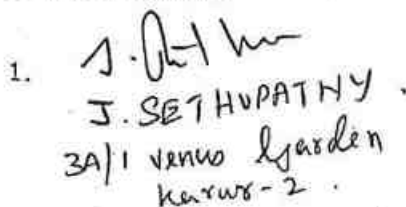 1.
J. SETHUPATHY.
3A/1 Venus Garden
Karur-2.